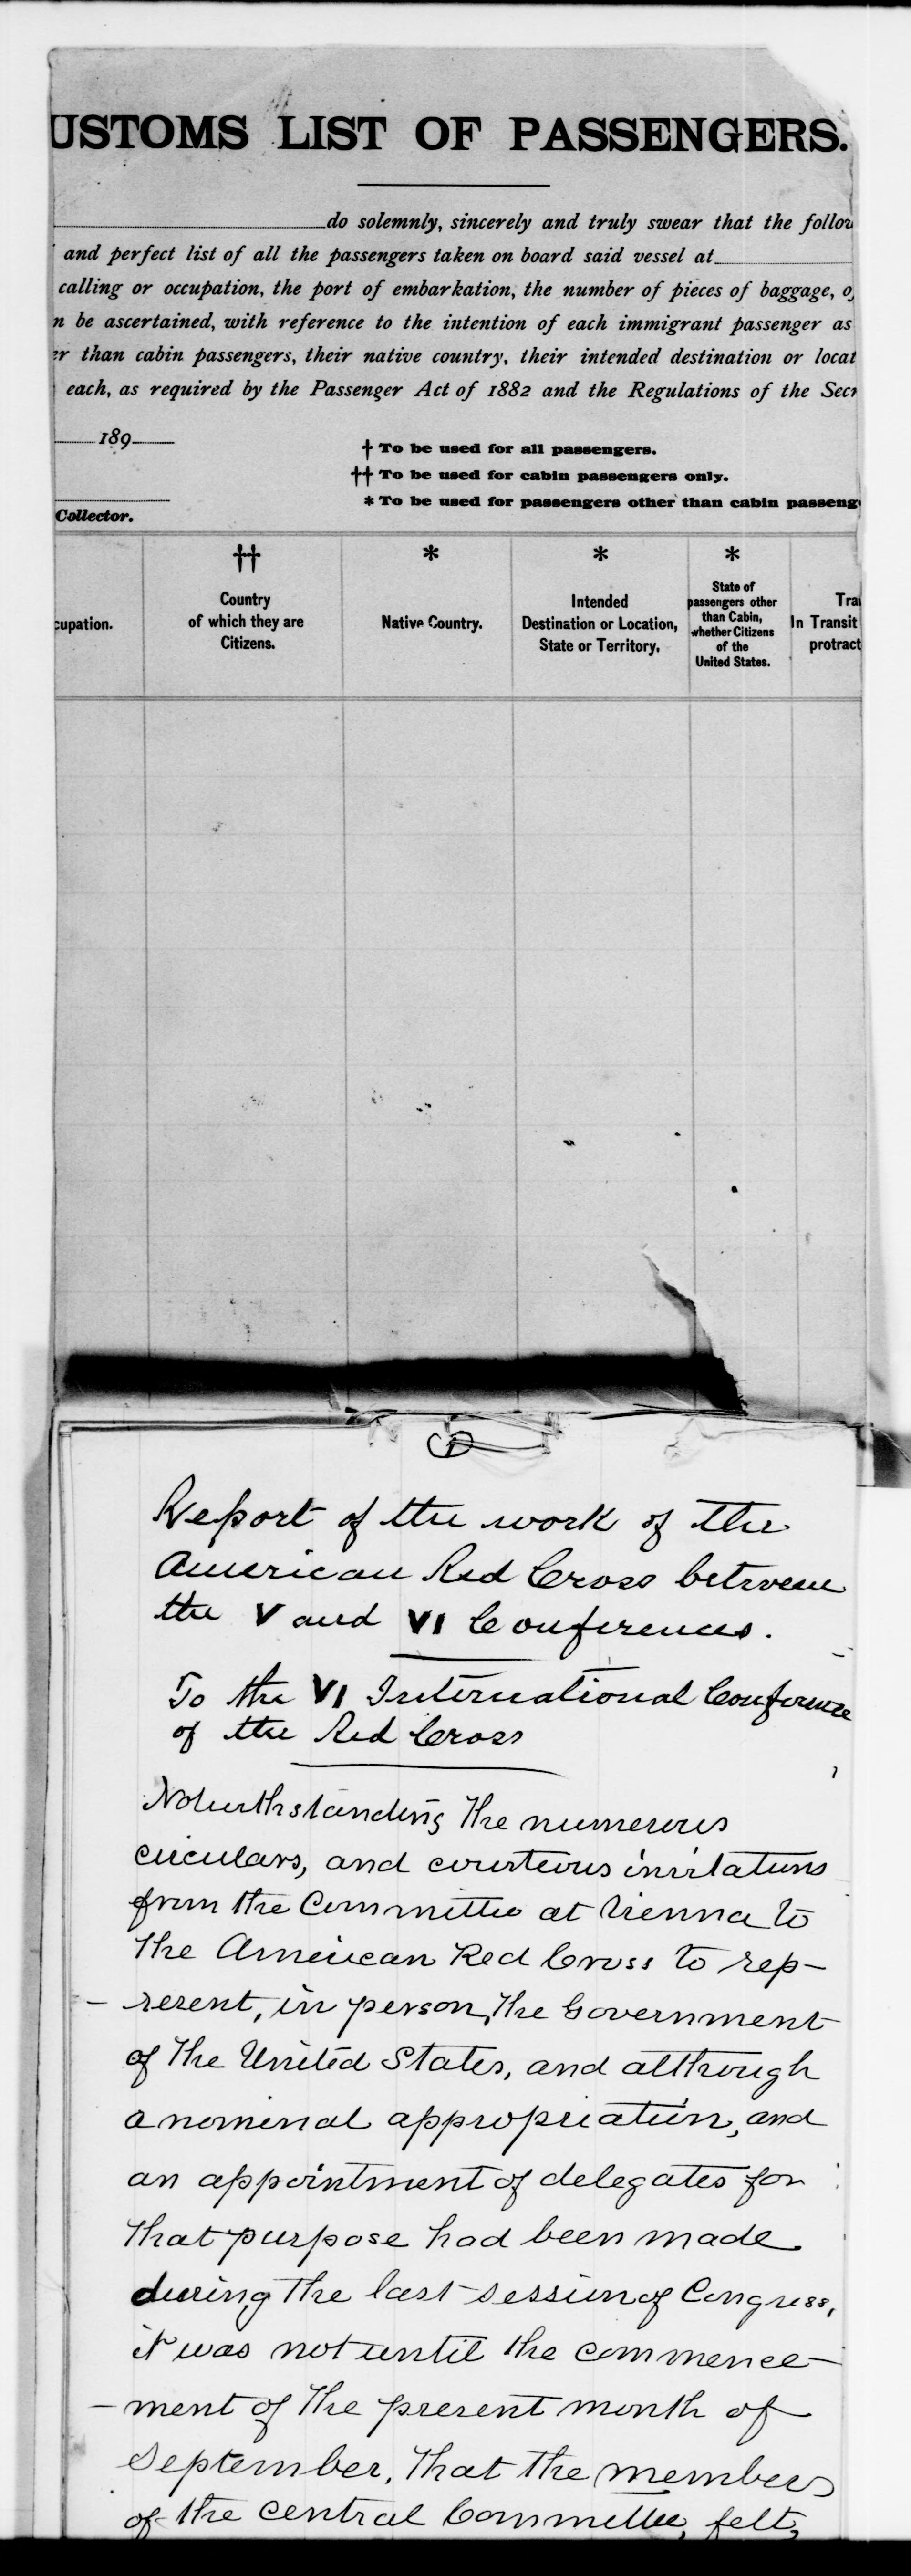 USTOMS LIST OF PASSENGERS.
do solemnly, sincerely and truly swear that the follow
and perfect list of all the passengers taken on board said vessel at
calling or occupation, the port of embarkation, the number of pieces of baggage, o
n be ascertained, with reference to the intention of each immigrant passenger as
er than cabin passengers, their native country, their intended destination or locat
each, as required by the Passenger Act of 1882 and the Regulations of the Secr
189
† To be used for all passengers.
†† To be used for cabin passengers only.
* To be used for passengers other than cabin passeng
Collector.
cupation.
††
Country
of which they are
Citizens.
*
Native Country.
*
Intended
Destination or Location,
State or Territory.
*
State of
passengers other
than Cabin,
whether Citizens
of the
United States.
Tra
In Transit
protract
Report of the work of the
American Red Cross between
the V and VI Conferences.
To the VI International Conference
of the Red Cross
Notwithstanding the numerous
circulars, and courteous invitations
from the Committee at Vienna to
the American Red Cross to rep-
- resent, in person, the Government
of the United States, and although
a nominal appropriation, and
an appointment of delegates for
that purpose had been made
during the last session of Congress,
it was not until the commence-
- ment of the present month of
September, that the members
of the central Committee, felt,